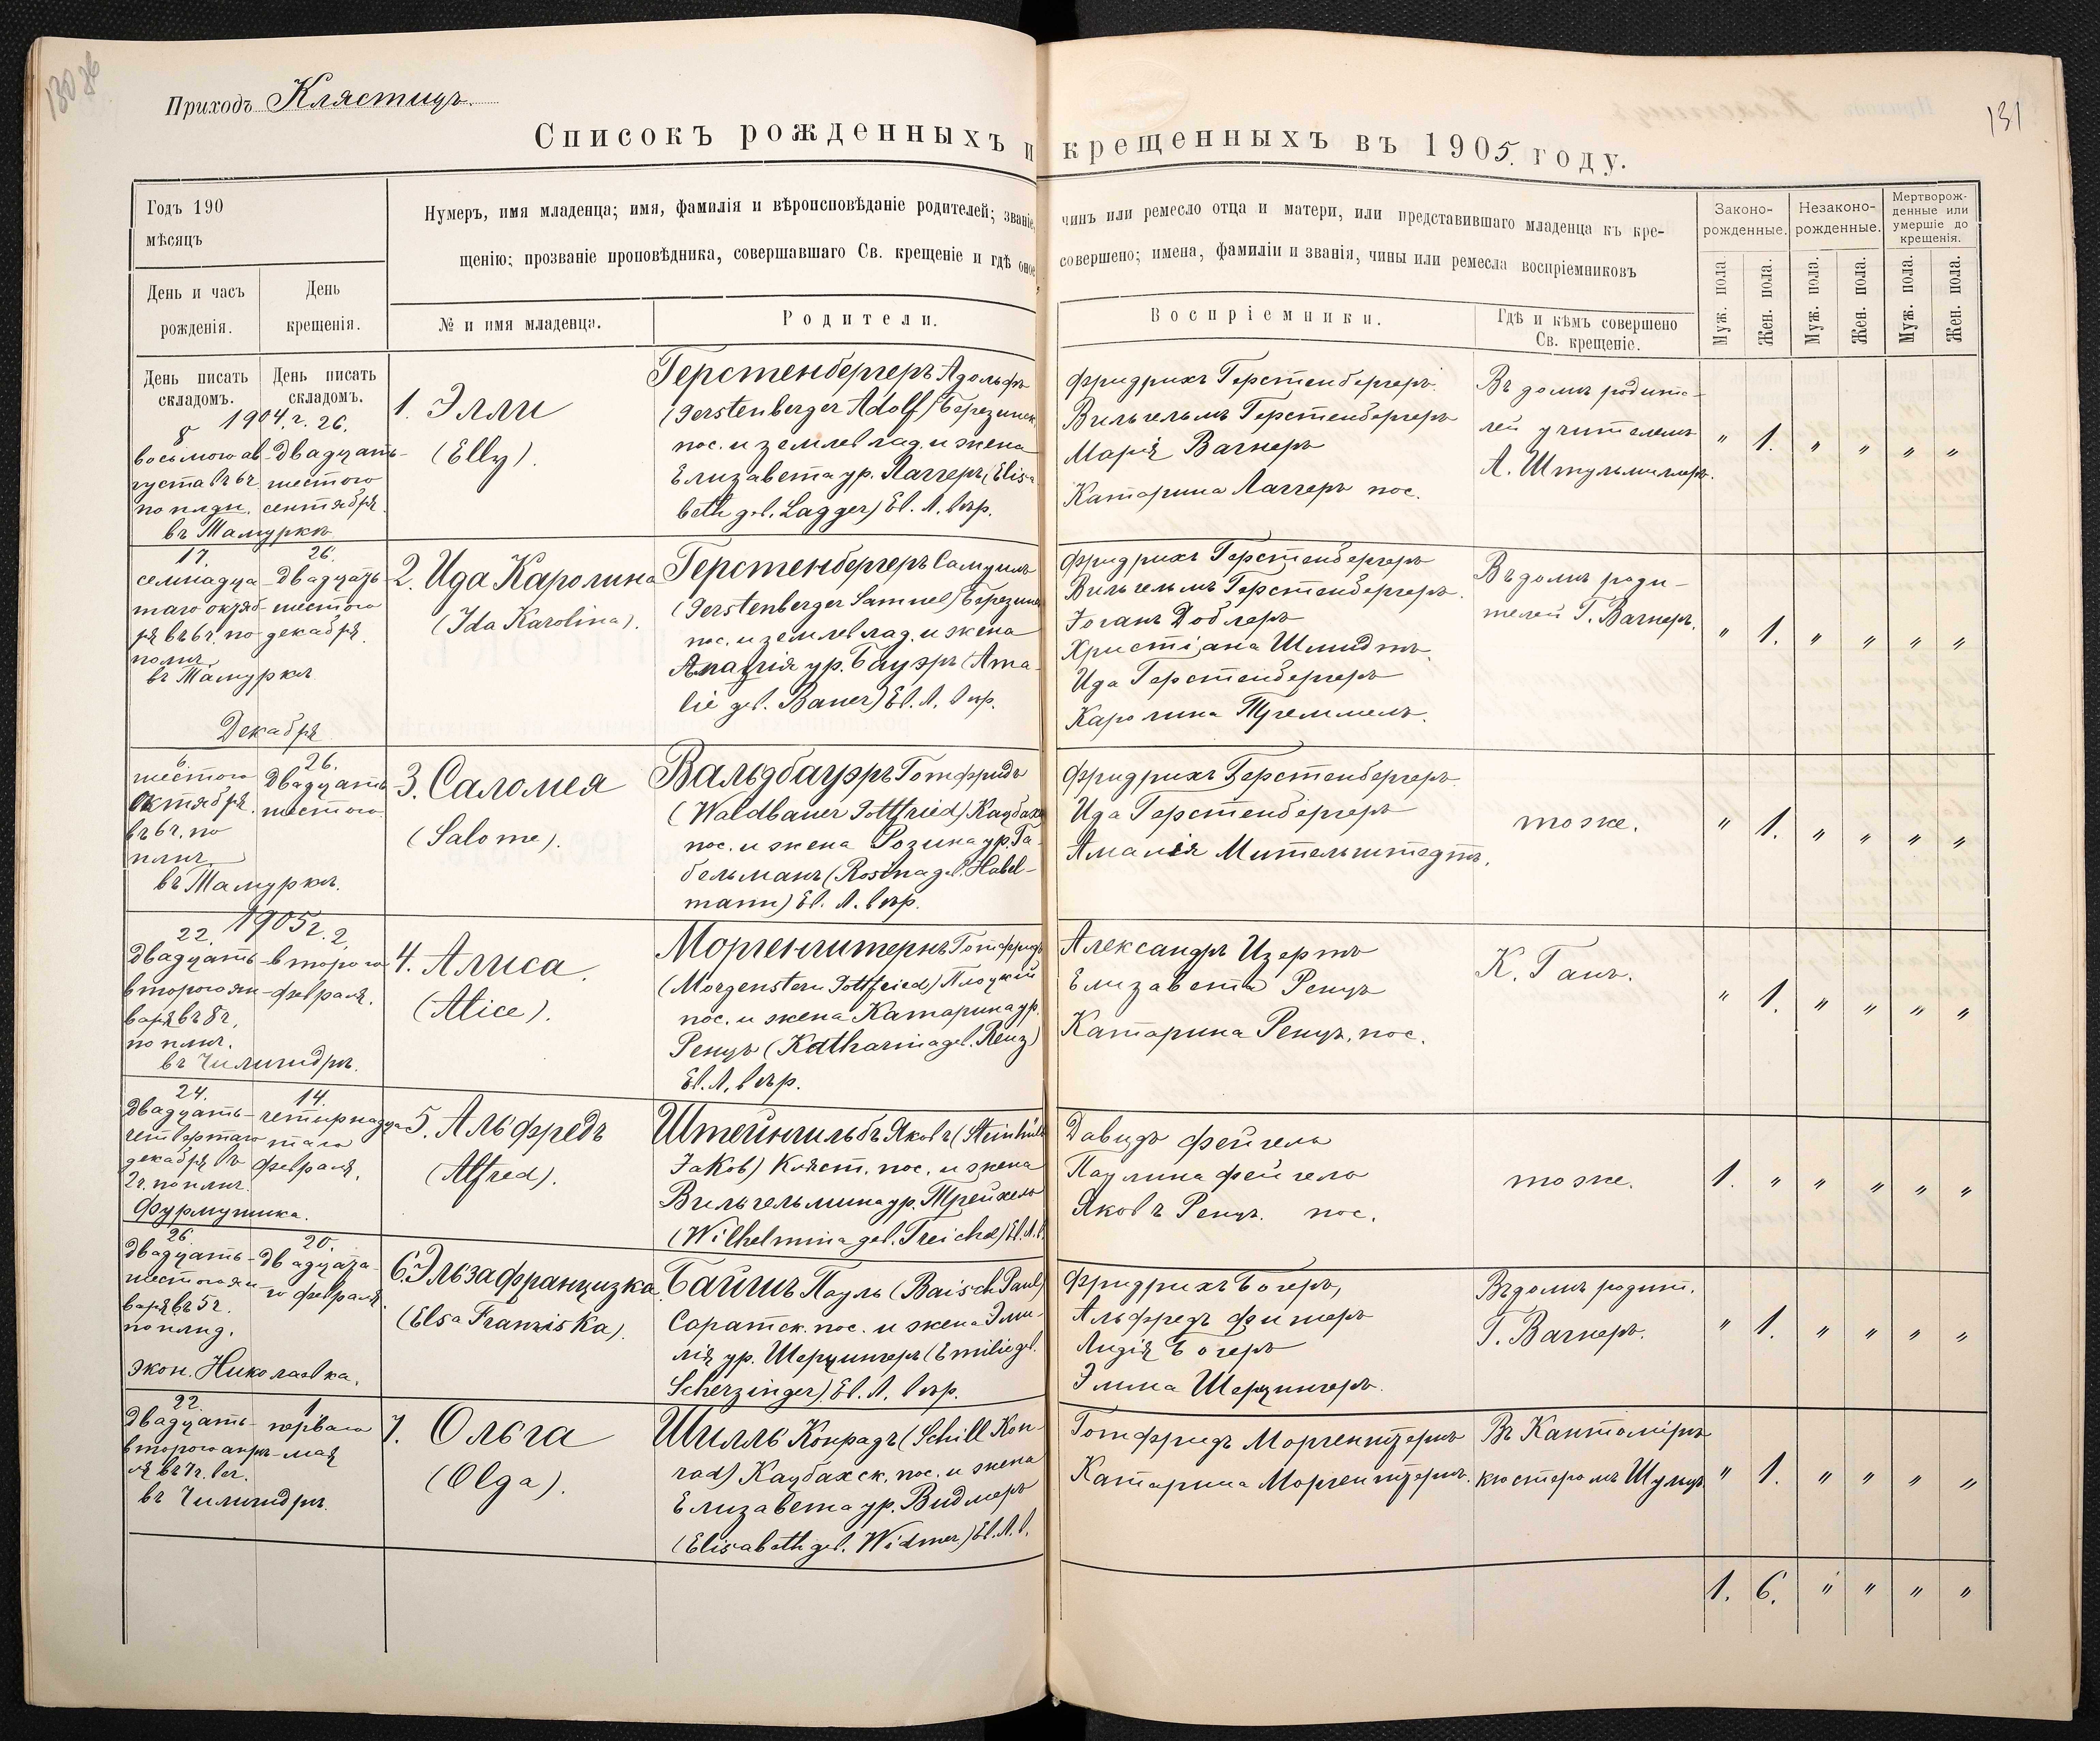 130 об
131
Приходъ Клястицъ.
Списокъ рожденныхъ и крещенныхъ въ 1905. году.
Годъ 190
мѣсяцъ
День и часъ
рожденія.
День
крещенія.
Нумеръ, имя младенца; имя, фамилія и вѣроисповѣданіе родителей; званіе,
щенію; прозваніе проповѣдника, совершавшаго Св. крещеніе и гдѣ оное
№ и имя младенца.
Родители.
чинъ или ремесло отца и матери, или представившаго младенца къ кре-
совершено; имена, фамиліи и званія, чины или ремесла воспріемниковъ
Воспріемники.
Гдѣ и кѣмъ совершено
Св. крещеніе.
Законо-
рожденные.
Незаконо-
рожденные.
Мертворож-
денные или
умершіе до
крещенія.
Муж. пола.
Жен. пола.
Муж. пола.
Жен. пола.
Муж. пола.
Жен. пола.
День писать
складомъ.
День писать
складомъ.
1904 г. 26.
8
восьмого ав-
густа въ 6ч.
по плдн.
въ Тамуркѣ
двадцать
шестого
сентября.
1. Элли
(Elly).
Герстенбергеръ Адольфъ
(Gerstenberger Adolf) Березинск
пос. и землевлад. и жена
Елизавета ур. Лаггеръ (Elisa
beth geb. Lagger) Ев. Л. вѣр.
Фридрихъ Герстенбергеръ
Вильгельмъ Герстенбергеръ
Марія Вагнеръ
Катарина Лаггеръ пос.
Въ домѣ родите-
лей учителемъ
А. Штульмиллеръ.
" 1. " " " "
17.
семнадца
таго октяб-
ря въ 6ч. по
полн.
въ Тамуркѣ
26.
двадцать
шестого
декабря.
2. Ида Каролина
(Ida Karolina).
Герстенбергеръ Самуилъ
(Gerstenberger Samuel) Березин
пос. и землевлад. и жена
Амалія ур. Бауэръ (Ama-
lie geb. Bauer) Ев. Л. вѣр.
Фридрихъ Герстенбергеръ
Вильгельмъ Герстенбергеръ.
Іоганъ Доблеръ
Христіана Шмидтъ.
Ида Герстенбергеръ
Каролина Треммель.
Въ домѣ роди-
телей Г. Вагнеръ.
" 1. " " " "
Декабря
6.
шестого
октября.
въ 6ч. по
плнч.
въ Тамуркѣ.
26.
двадцать
шестого.
3. Саломея
(Salome).
Вальдбауэръ Готфридъ
(Waldbauer Gottfried) Кацбах
пос. и жена Розина ур. Га-
бельманъ (Rosina geb. Habel-
mann) Ев. Л. вѣр.
Фридрихъ Герстенбергеръ
Ида Герстенбергеръ
Амалія Мительштедтъ.
тоже.
" 1. " " " "
1905 г.
22.
двадцать
второго ян-
варя въ 8ч.
по плнч.
въ Чилигидрѣ.
2.
второго
февраля.
4. Алиса.
(Alice).
Моргенштернъ Готфридъ
(Morgenstern Gottfried) Плоцкій
пос. и жена Катарина ур.
Ренцъ (Katharina geb. Renz)
Ев. Л. вѣр.
Александръ Изертъ
Елизавета Ренцъ
Катарина Ренцъ, пос.
К. Ганъ.
" 1. " " " "
24.
двадцать
четвертаго
декабря въ
2ч. по плнч.
Фурмушика.
14.
четырнадца
таго
февраля.
5. Альфредъ
(Alfred).
Штейнгильбъ Яковъ (Steinhülb
Jakob) Кляст. пос. и жена
Вильгельмина ур. Трейхель
(Wilhelmina geb. Treichel) Ев. Л. в.
Давидъ Фейгель
Паулина Фейгель
Яковъ Ренцъ. пос.
тоже.
1. " " " " "
26.
двадцать
шестого ян-
варя въ 5ч.
по плнд.
экон. Николаевка.
20.
двадцата-
го февраля.
6. Эльза Францизка
(Elsa Franziska).
Байшъ Пауль (Baisch Paul)
Саратск. пос. и жена Эми-
лія ур. Шерцингеръ (Emilie geb.
Scherzinger) Ев. Л. вѣр.
Фридрихъ Богеръ,
Альфредъ Фишеръ
Лидія Богеръ
Эмма Шерцингеръ.
Въ домѣ родит.
Г. Вагнеръ.
" 1. " " " "
22.
двадцать
второго апрѣ-
ля въ 7ч. веч.
въ Чилигидрѣ.
1.
перваго
мая
7. Ольга
(Olga).
Шилль Конрадъ (Schill Kon-
rad) Кацбахск. пос. и жена
Елизавета ур. Видмеръ
(Elisabeth geb. Widmer) Ев. Л. в.
Готфридъ Моргенштернъ
Катарина Моргенштернъ.
Въ Кантемірѣ
кюстеромъ Шульцъ.
" 1. " " " "
1. 6. " " " "